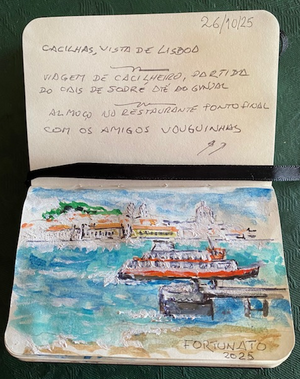 26/10/25
CACILHAS, VISTA DE LISBOA
VIAGEM DE CACILHEIRO, PARTIDA
DO CAIS DE SODRÉ ATÉ AO GINJAL
ALMOÇO NO RESTAURANTE PONTO FINAL
COM OS AMIGOS VOUGUINHAS
FORTUNATO
2025